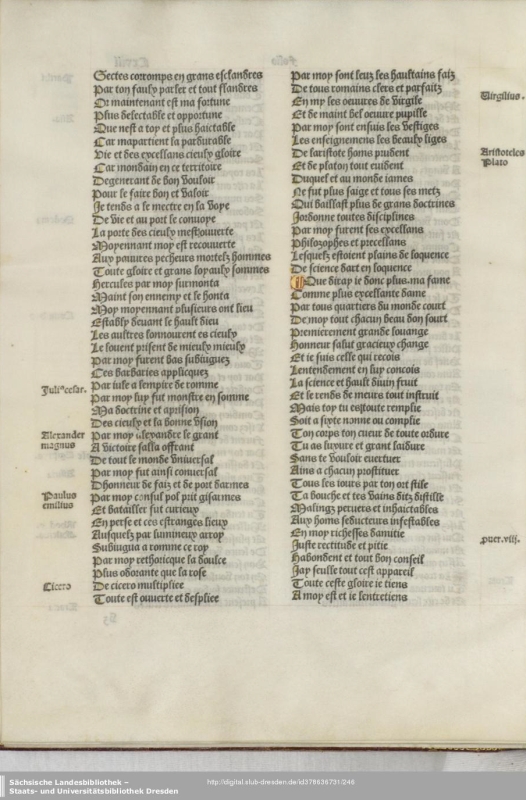 Sectes corromps en grans esclandres
Par ton faulx parler et tout flandres
Or maintenant est ma fortune
Plus delectable et opportune
Que nest a toy et plus haictable
Car mapartient la pardurable
Vie et des excellans cieulx gloire
Car mondain en ce territoire
Degenerant de bon vouloir
Pour le faire bon et valoir
Je tends a le mectre en la voye
De vie et au port le convoye
La porte des cieulx mest ouverte
Moyennant moy est recouverte
Aux povures pecheurs mortelz hommes
Toute gloire et grans loyaulx sommes
Hercules par moy surmonta
Maint son ennemy et le honta
Moy moyennant plusieurs ont lieu
Establx devant le hault dieu
Les aultres sonnourent es cieulx
Le souent prisent de mieulx mieulx
Par moy furent bas subiuguez
Ces barbaries applicquez
Juli⁹cesar.
Par iule a lempire de romme
Par moy luy fut monstre en somme
Ma doctrine et aprision
Des cieulx et la bonne vision
Alexander
magnus
Par moy alexandre le grant
A victoire salla offrant
De tout le monde vniversal
Par moy fut ainsi conversal
Dhonneur de faiz et de port darmes
Paulus
emilius
Par moy consul pol prit gisarmes
Et batailler fut curieux
En perse et ces estranges lieux
Ausquelz par lumineux arroy
Subiuga a romme ce roy
Par moy rethoricque la doulce
Plus odorante que la rose
Cicero
De cicero multiplice
Toute est ouverte et desplice
Par moy sont leuz les haultains faiz
De tous romains clers et parfaitz
Virgilius.
En my les oeuures de virgile
Et de maint bel oeuure pupille
Par moy sont ensuis les vestiges
Les enseignemens les beaulx liges
Aristoteles
Plato
De laristote homs prudent
Et de platon tout euident
Duquel et au monde iames
Ne fut plus saige et tous ses metz
Qui baillast plus de grans doctrines
Jordonne toutes disciplines
Par moy furent ses excellans
Philozophes et precellans
Lesquelz estoient plains de loquence
De science dart en loquence
Que diray ie donc plus ma fame
Comme plus excellante dame
Par tous quartiers du monde court
De moy tout chacun beau don sourt
Premierement grande louange
Honneur salut gracieux change
Et ie suis celle qui recois
Lentendement en luy concois
La science et hault divin fruit
Et le rends de meurs tout instruit
Mais toy tu es toute remplie
Soit a sixte nonne ou complie
Ton corps ton cueur de toute ordure
Tu as luxure et grant laidure
Sans te vouloir euertuer
Ains a chacun prostituer
Tous les iours par ton ort stile
Ta bouche et tes vains ditz distille
Malingz peruers et inhaictables
Aux homs seducteurs infestables
En moy richesses damitie
puer.viij.
Juste rectitude et pitie
Habondent et tout bon conseil
Jay seulle tout cest appareil
Toute ceste gloire ie tiens
A moy est et ie lentretiens
Sächsische Landesbibliothek –
Staats- und Universitätsbibliothek Dresden
http://digital.slub-dresden.de/id378636731/246